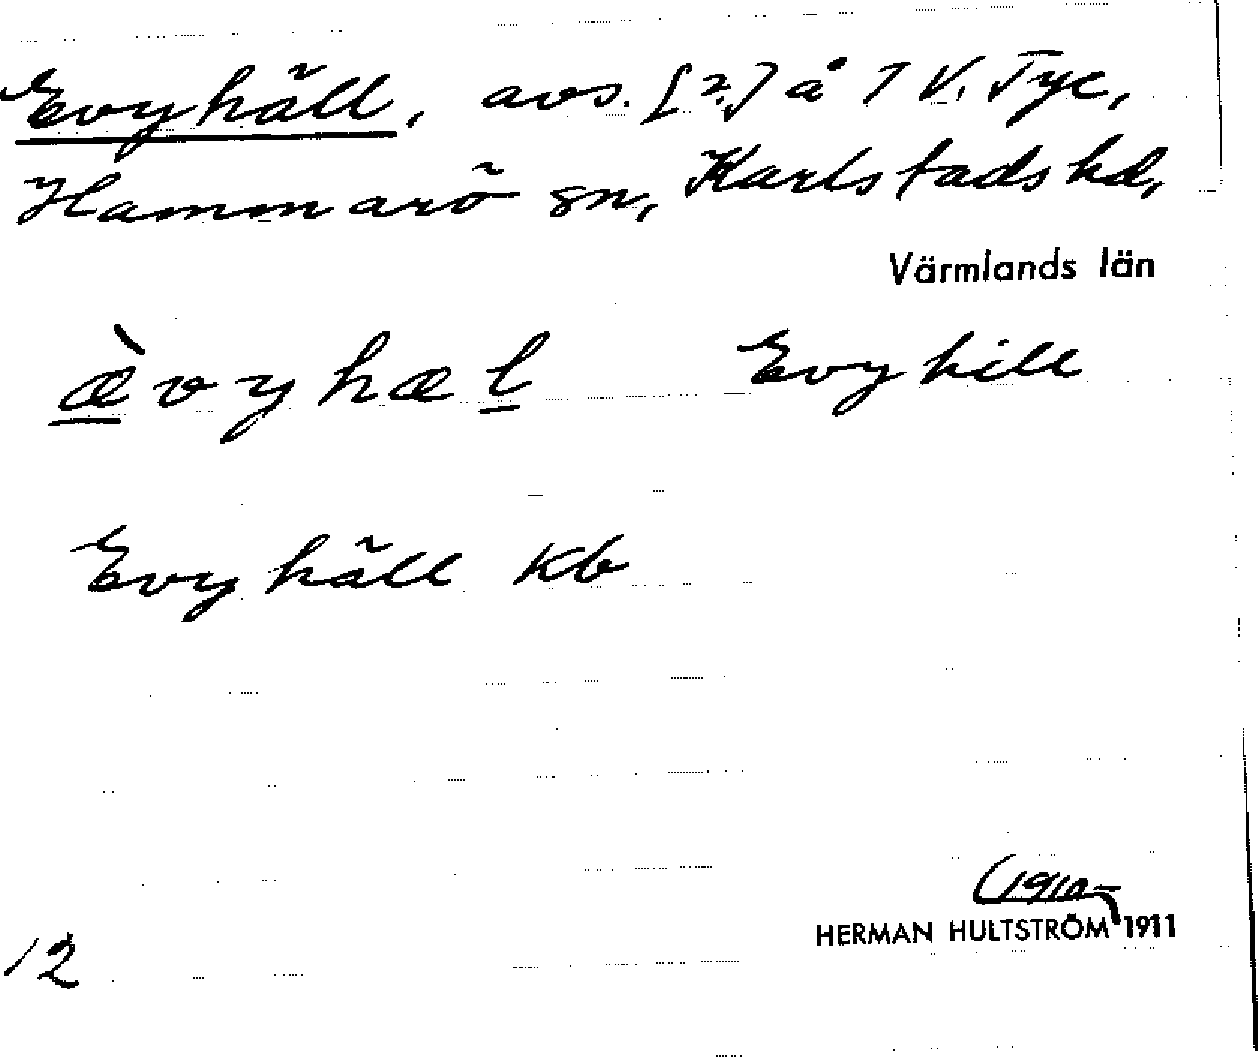 Evyhäll, avs. [?] å 7 V. Tye,
Hammarö sn, Karlstads hd,
Värmlands län
æ̀vyhæl Evyhill
Evyhäll Kb
(1910–
HERMAN HULTSTRÖM 1911
12